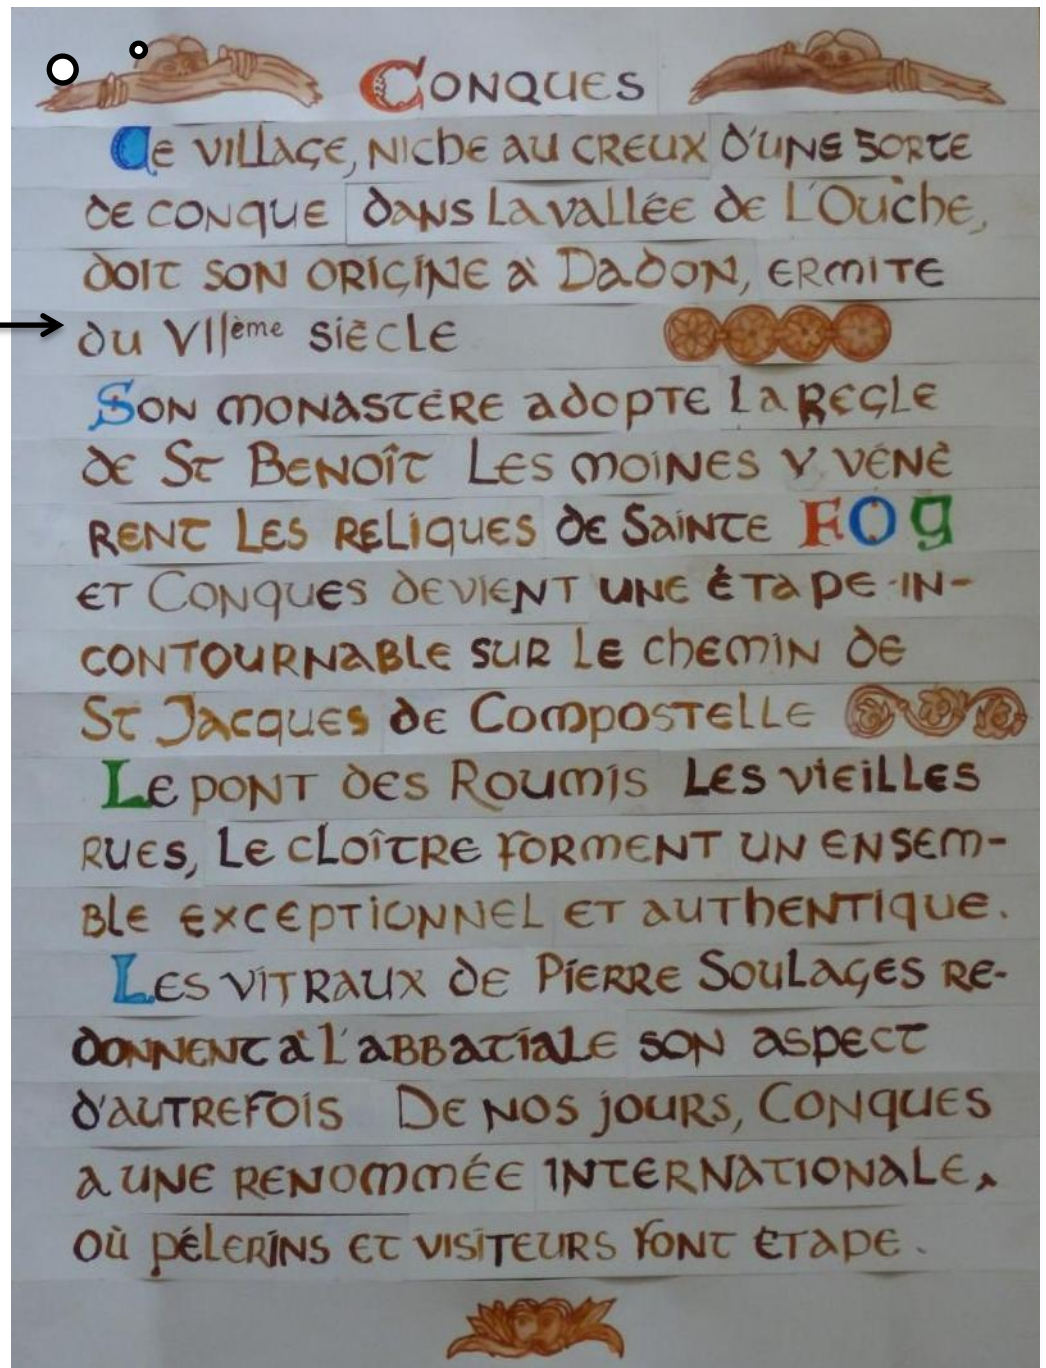 CONQUES
Ce village, niche au creux d'une sorte
de conque dans la vallée de l'Ouche,
doit son origine à Dadon, ermite
du VIIème siècle
Son monastère adopte la regle
de St Benoît Les moines y vénè
rent les reliques de Sainte FOy
et Conques devient une étape in-
contournable sur le chemin de
St Jacques de Compostelle
Le pont des Roumis les vieilles
rues, le cloître forment un ensem-
ble exceptionnel et authentique.
Les vitraux de Pierre Soulages re-
donnent à l'abbatiale son aspect
d'autrefois De nos jours, Conques
a une renommée internationale,
où pélerins et visiteurs font étape.